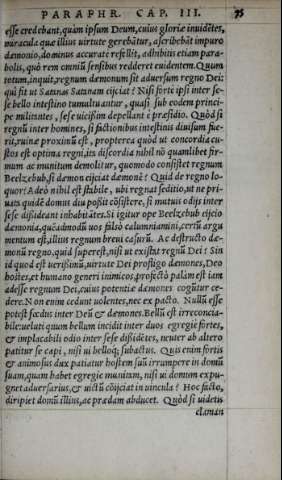 PARAPHR. CAP. III. 75
esse credebant, quàm ipsum Deum, cuius gloriæ inuidẽtes,
miracula quæ illius uirtute gerebãtur, ascribebãt impuro
dæmonio, dominus accurate refellit, adhibitis etiam para-
bolis, quò rem omniũ sensibus redderet euidentem. Quum
totum, inquit, regnum dæmonum sit aduersum regno Dei:
qui fit ut Satanas Satanam eijciat? Nisi forte ipsi inter se-
se bello intestino tumultuantur, quasi sub eodem princi-
pe militantes, sese uicissim depellant è præsidio. Quòd si
regnũ inter homines, si factionibus intestinis diuisum fue-
rit, ruinæ proximũ est, propterea quòd ut concordia cu-
stos est optima regni, ita discordia nihil nõ quamlibet fir-
mum ac munitum demolitur, quomodo consistet regnum
Beelzebub, si dæmon eijciat dæmonẽ? Quid de regno lo-
quor? Adeò nihil est stabile, ubi regnat seditio, ut ne pri-
uata quidẽ domus diu possit cõsistere, si mutuis odijs inter
sese dissideant inhabitãtes. Si igitur ope Beelzebub eijcio
dæmonia, quẽadmodũ uos falsò calumniamini, certũ argu
mentum est, illius regnum breui casurũ. Ac destructo dæ-
monũ regno, quid superest, nisi ut existat regnũ Dei? Sin
id quod est uerissimũ, uirtute Dei profligo dæmones, Deo
hostes, et humano generi inimicos, profectò palàm est iam
adesse regnum Dei, cuius potentiæ dæmones cogũtur ce-
dere. Non enim cedunt uolentes, nec ex pacto. Nullũ esse
potest fœdus inter Deũ & dæmones. Bellũ est irreconcia-
bile: uelati quum bellum incidit inter duos egregie fortes,
& implacabili odio inter sese dissidẽtes, neuter ab altero
patitur se capi, nisi ui belloq́; subactus. Quis enim fortis
& animosus dux patiatur hostem suũ irrumpere in domũ
suam, quam habet egregie munitam, nisi ui domum expu-
gnet aduersarius, & uictũ cõijciat in uincula? Hoc facto,
diripiet domũ illius, ac prædam abducet. Quòd si uidetis
claman